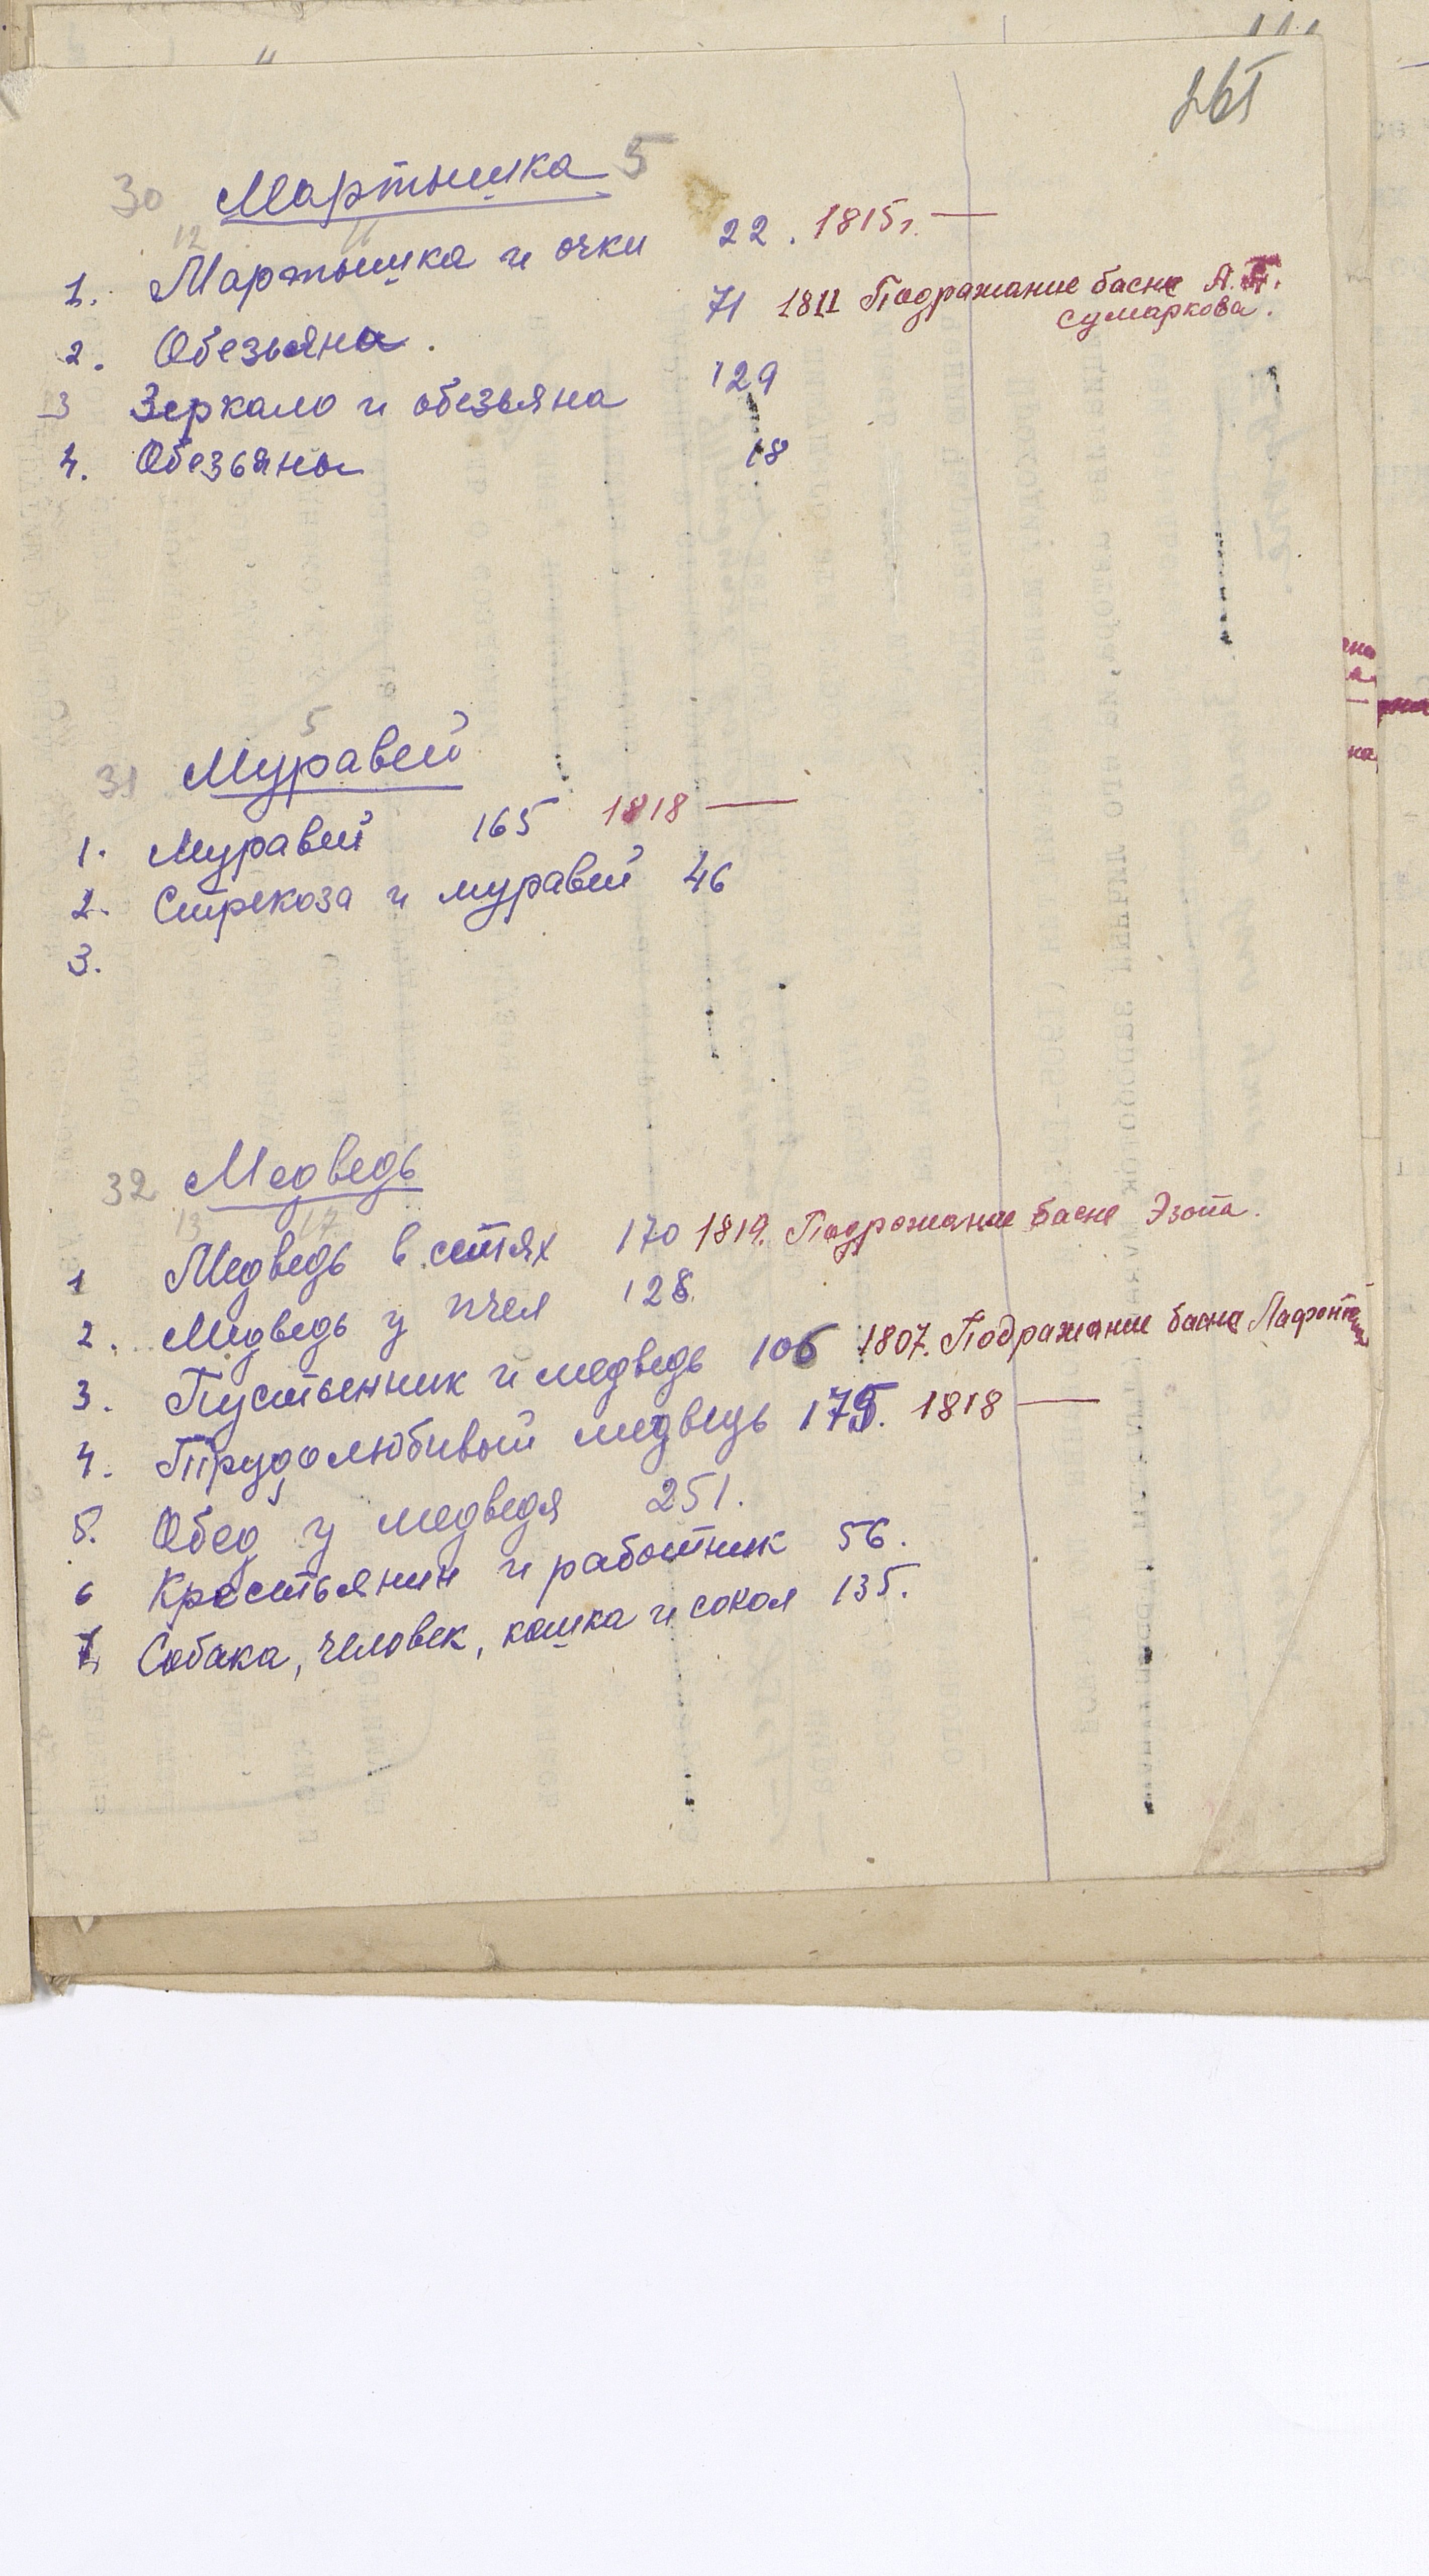 261
30 Мартышка 5
12 11
1. Мартышка и очки 22. 1815г. —
2. Обезьяна. 71 1811 Подражание басне А.
Сумаркова.
3 Зеркало и обезьяна 129
4. Обезьяны 18
5
31 Муравей
1. Муравей 165 1818 —
2. Стрекоза и муравей 46
3.
32 Медведь
13 17
1 Медведь в сетях 170 1819. Подражание басне Эзопа.
2. Медведь у пчел 128.
3. Пустынник и медведь 106 1807. Подражание басне Лафонтена
4. Трудолюбивый медведь 175. 1818 —
5. Обед у медведя 251.
6 Крестьянин и работник 56.
7. Собака, человек, кошка и сокол 135.